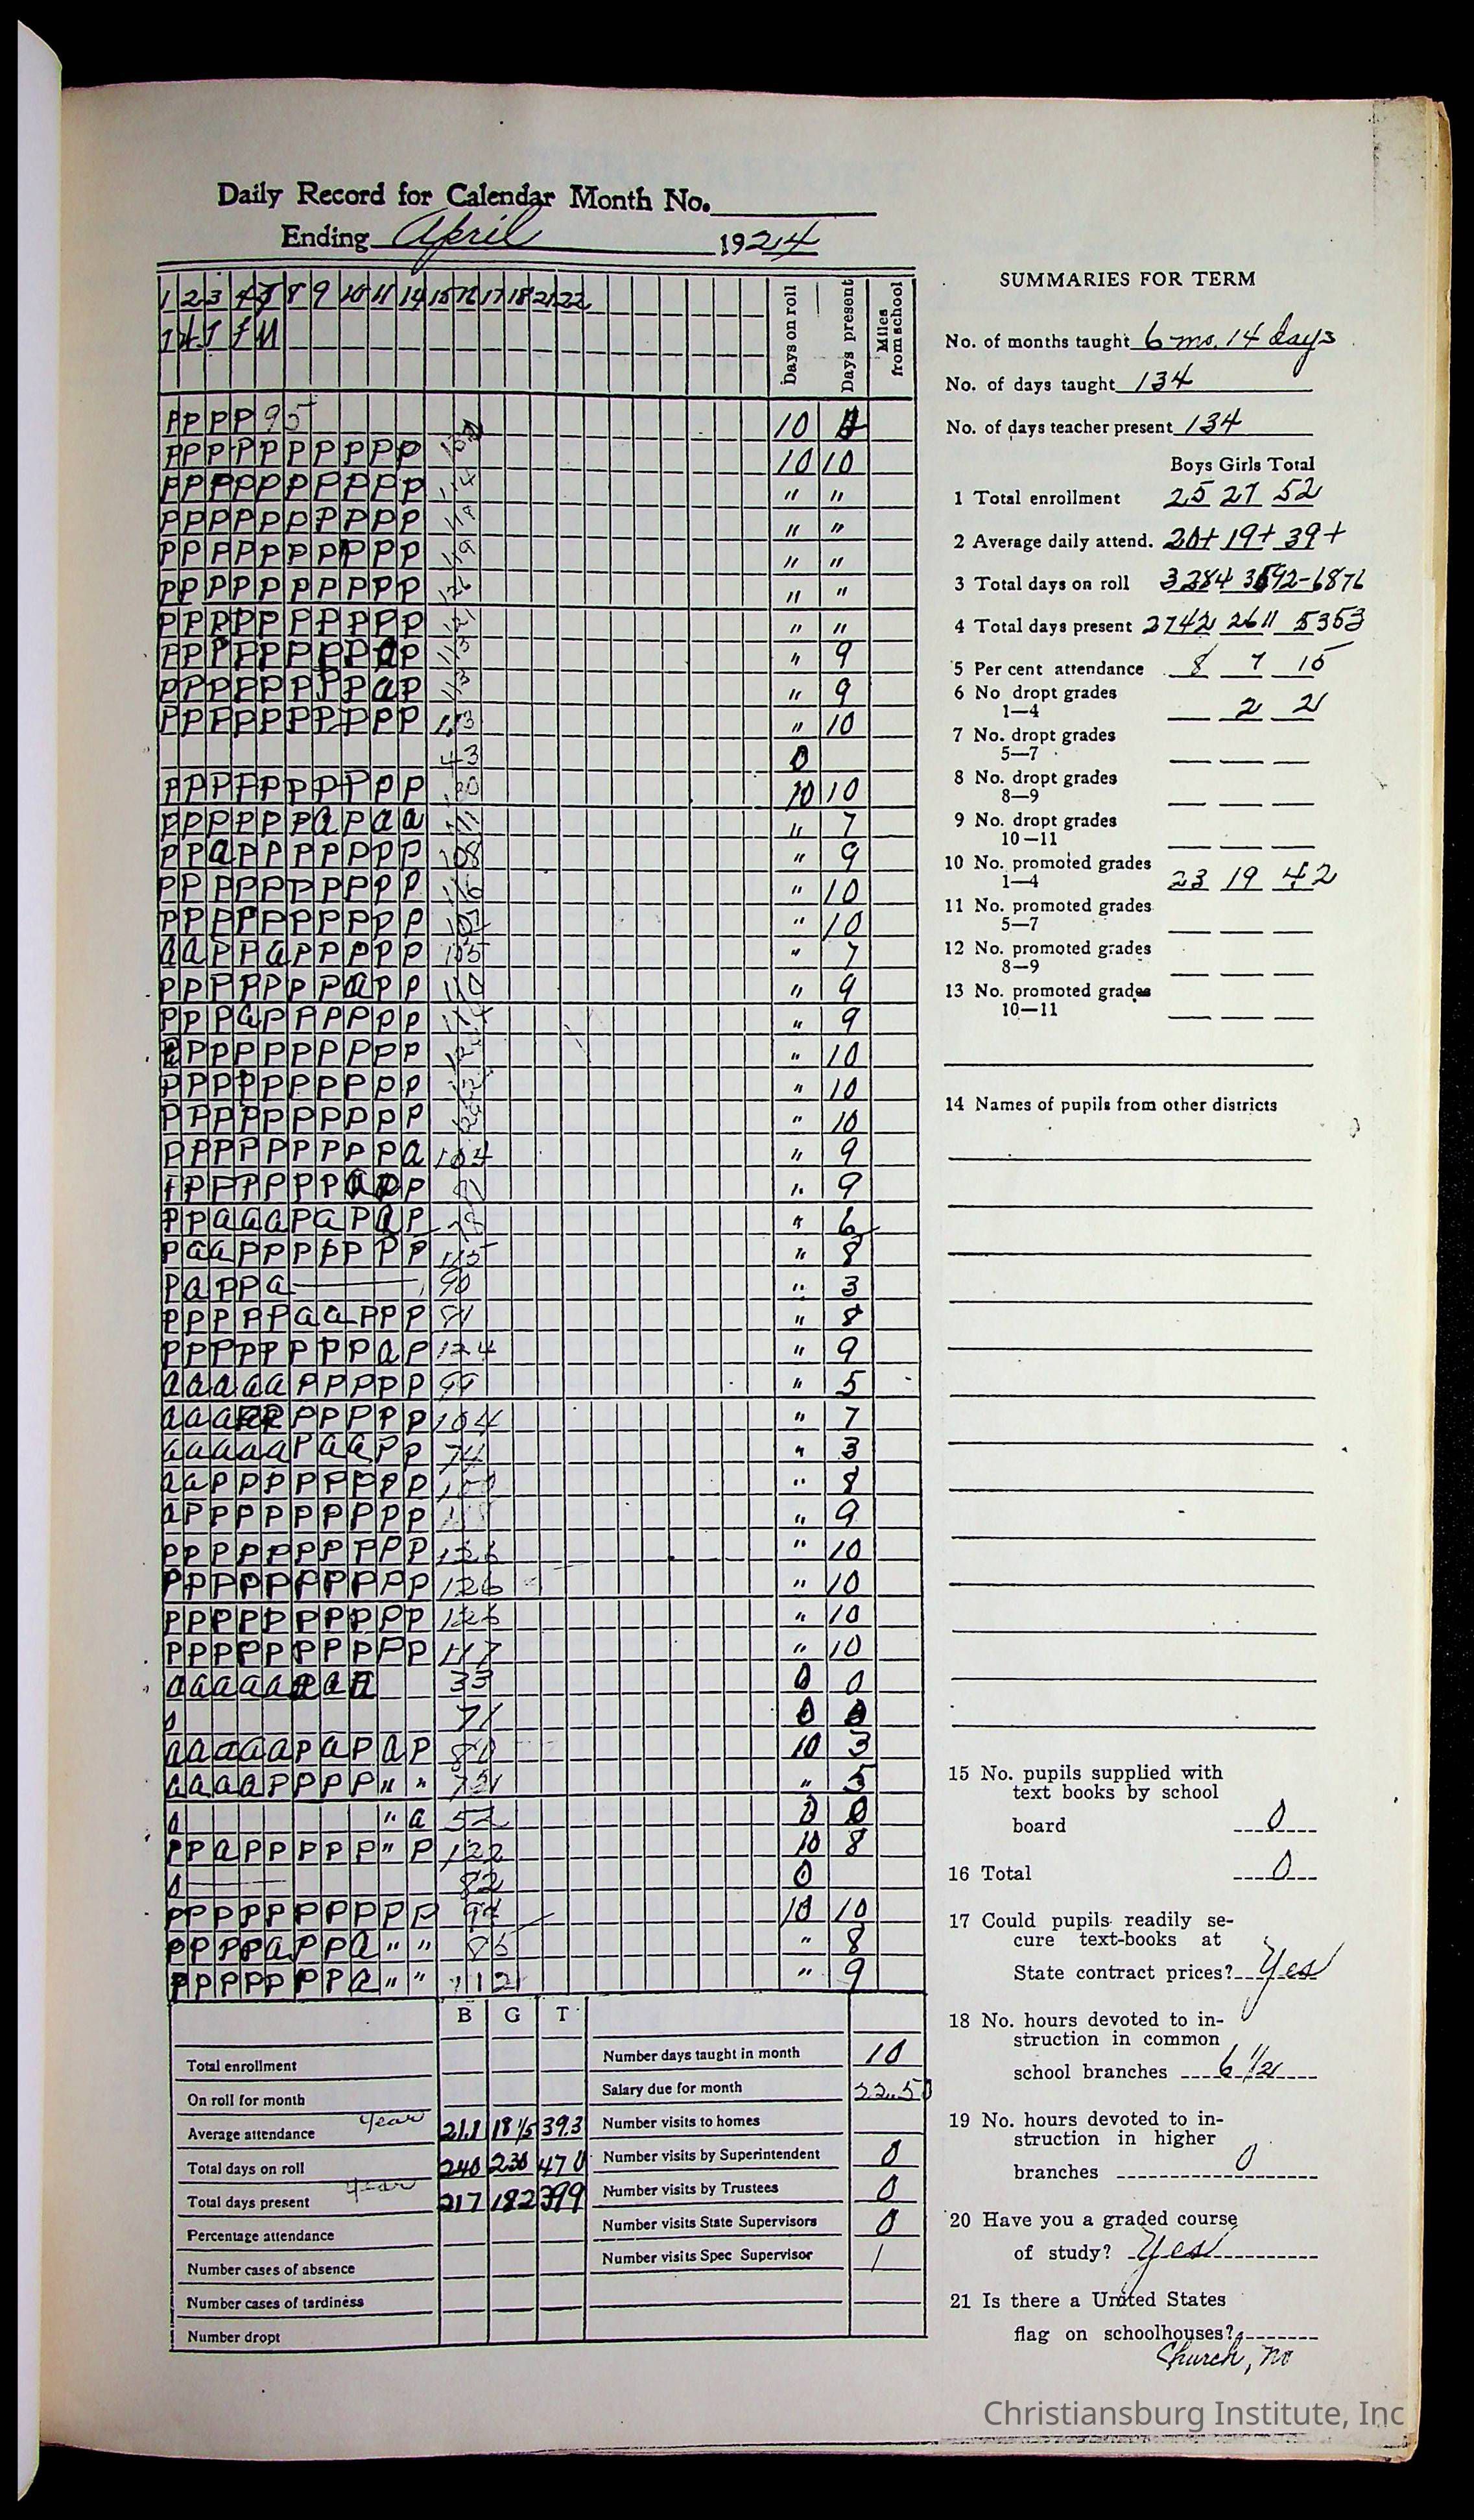 Daily Record for Calendar Month No.
Ending April 1924
1 2 3 4 7 8 9 10 11 14 15 16 17 18 21 22
Days on roll
Days present
Miles from school
P P P P 95 10
P P P P P P P P P P 10 10
P P P P P P P P P P 114 " "
P P P P P P P P P P 119 " "
P P P P P P P P P P 119 " "
P P P P P P P P P P 126 " "
P P P P P P P P P P 121 " "
P P P P P P P P a P 113 " 9
P P P P P P P P a P 113 " 9
P P P P P P P P P P 113 " 10
43 0
P P P P P P P P P P 120 10 10
P P P P P P a P a a 111 " 7
P P a P P P P P P P 108 " 9
P P P P P P P P P P 116 " 10
P P P P P P P P P P 107 " 10
a a P P a P P P P P 105 " 7
P P P P P P P a P P 110 " 9
P P P a P P P P P P 114 " 9
P P P P P P P P P " 10
P P P P P P P P P P " 10
P P P P P P P P P P " 10
P P P P P P P P P a 104 " 9
P P P P P P P a P P 81 " 9
P P a a a P a P a P 78 " 6
P a a P P P P P P P 115 " 8
P a P P a 90 " 3
P P P P P a a P P P 81 " 8
P P P P P P P P a P 124 " 9
a a a a a P P P P P 99 " 5
a a a P P P P P P P 104 " 7
a a a a a P a a P P 74 " 3
a a P P P P P P P P " 8
a P P P P P P P P P 118 " 9
P P P P P P P P P P 126 " 10
P P P P P P P P P P 126 " 10
P P P P P P P P P P 126 " 10
P P P P P P P P P P 117 " 10
a a a a a a a 33 0 0
0 71 0 0
a a a a a P a P a P 80 10 3
a a a a P P P P " " " 5
0 " a 52 0 0
P P a P P P P P " P 122 10 8
0 82 0
P P P P P P P P P P 97 10 10
P P P P a P P a " " 85 " 8
P P P P P P P a " " 112 " 9
B G T
Total enrollment
On roll for month
Average attendance Year 21.1 18 1/5 39.3
Total days on roll 240 230 470
Total days present Year 217 182 399
Percentage attendance
Number cases of absence
Number cases of tardiness
Number dropt
Number days taught in month 10
Salary due for month 22.50
Number visits to homes
Number visits by Superintendent 0
Number visits by Trustees 0
Number visits State Supervisors 0
Number visits Spec Supervisor 1
SUMMARIES FOR TERM
No. of months taught 6 mo. 14 days
No. of days taught 134
No. of days teacher present 134
Boys Girls Total
1 Total enrollment 25 27 52
2 Average daily attend. 20+ 19+ 39+
3 Total days on roll 3284 3592-6876
4 Total days present 2742 2611 5353
5 Per cent attendance 8 7 15
6 No dropt grades
1—4 2 2
7 No. dropt grades
5—7
8 No. dropt grades
8—9
9 No. dropt grades
10—11
10 No. promoted grades
1—4 23 19 42
11 No. promoted grades
5—7
12 No. promoted grades
8—9
13 No. promoted grades
10—11
14 Names of pupils from other districts
15 No. pupils supplied with
text books by school
board 0
16 Total 0
17 Could pupils readily se-
cure text-books at
State contract prices? Yes
18 No. hours devoted to in-
struction in common
school branches 6 1/2
19 No. hours devoted to in-
struction in higher
branches 0
20 Have you a graded course
of study? Yes
21 Is there a United States
flag on schoolhouses?
Church, no
Christiansburg Institute, Inc